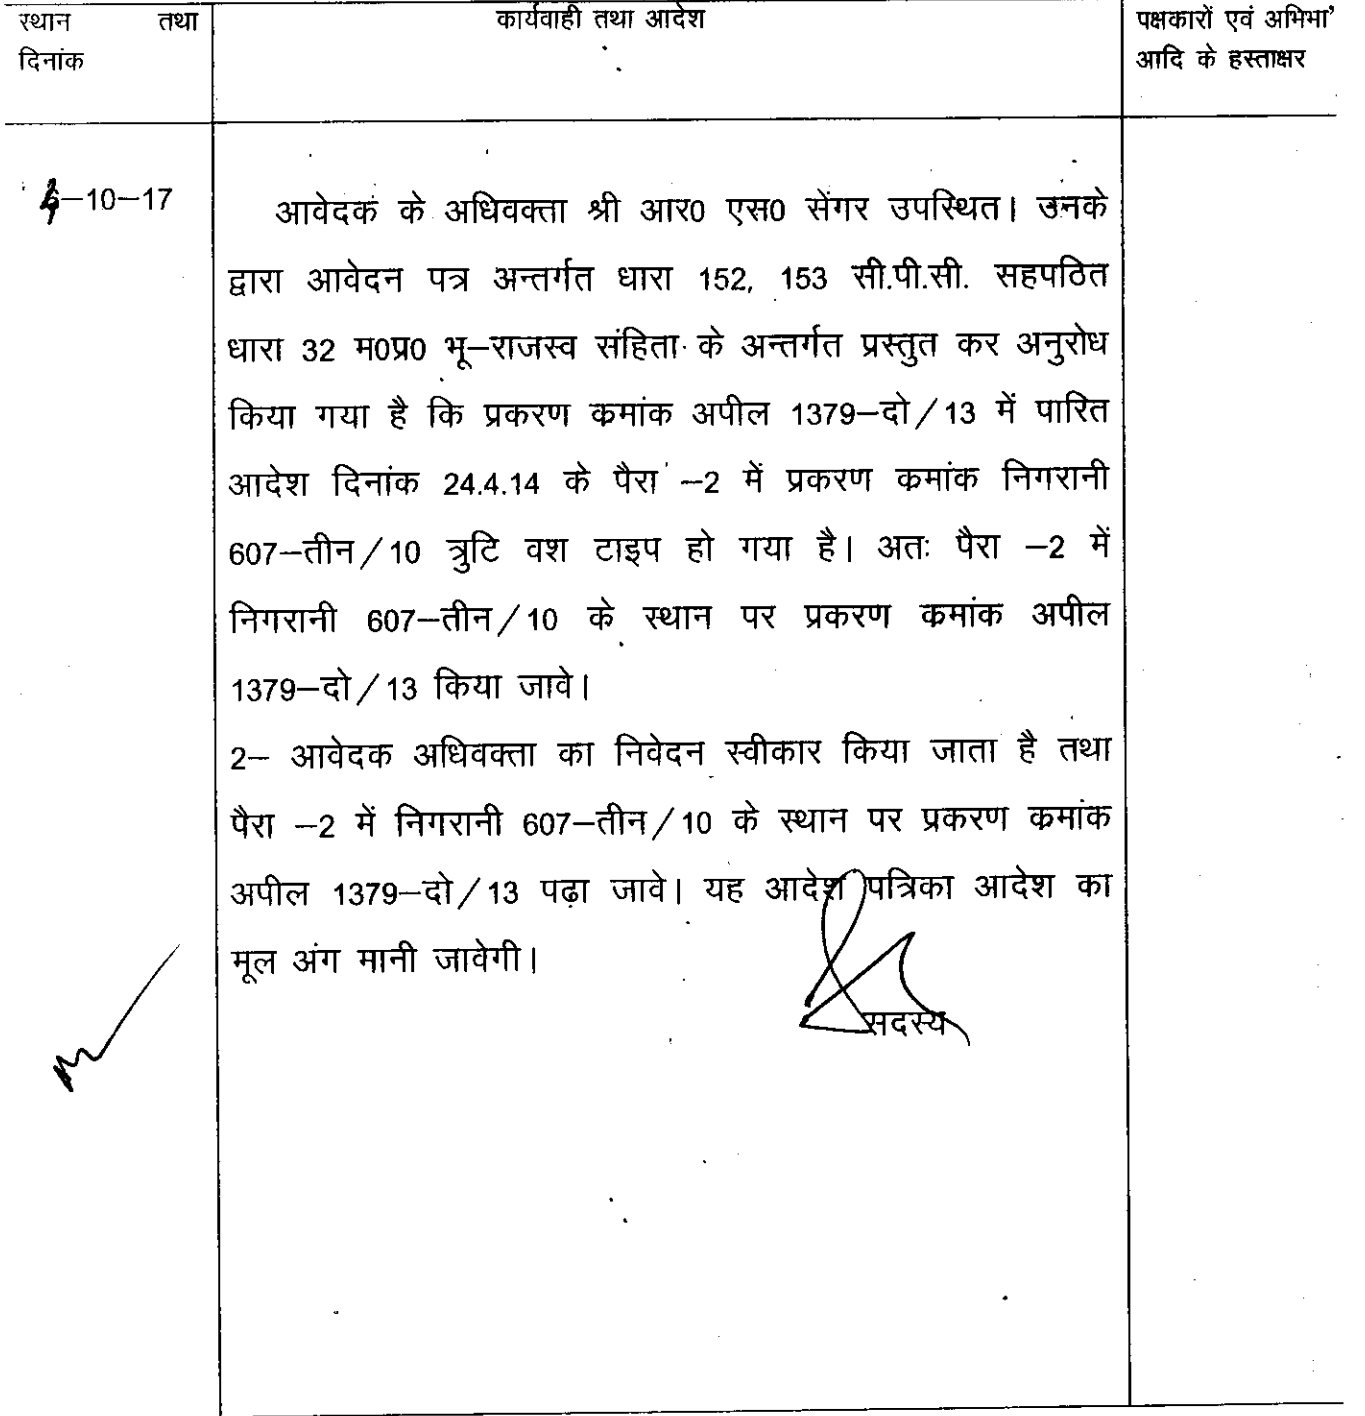 स्थान तथा
दिनांक
कार्यवाही तथा आदेश
पक्षकारों एवं अभिभा'
आदि के हस्ताक्षर
–10–17
आवेदक के अधिवक्ता श्री आर0 एस0 सेंगर उपस्थित। उनके
द्वारा आवेदन पत्र अन्तर्गत धारा 152, 153 सी.पी.सी. सहपठित
धारा 32 म0प्र0 भू–राजस्व संहिता के अन्तर्गत प्रस्तुत कर अनुरोध
किया गया है कि प्रकरण कमांक अपील 1379–दो/13 में पारित
आदेश दिनांक 24.4.14 के पैरा –2 में प्रकरण कमांक निगरानी
607–तीन/10 त्रुटि वश टाइप हो गया है। अतः पैरा –2 में
निगरानी 607–तीन/10 के स्थान पर प्रकरण कमांक अपील
1379–दो/13 किया जावे।
2– आवेदक अधिवक्ता का निवेदन स्वीकार किया जाता है तथा
पैरा –2 में निगरानी 607–तीन/10 के स्थान पर प्रकरण कमांक
अपील 1379–दो/13 पढ़ा जावे। यह आदेश पत्रिका आदेश का
मूल अंग मानी जावेगी।
सदस्य